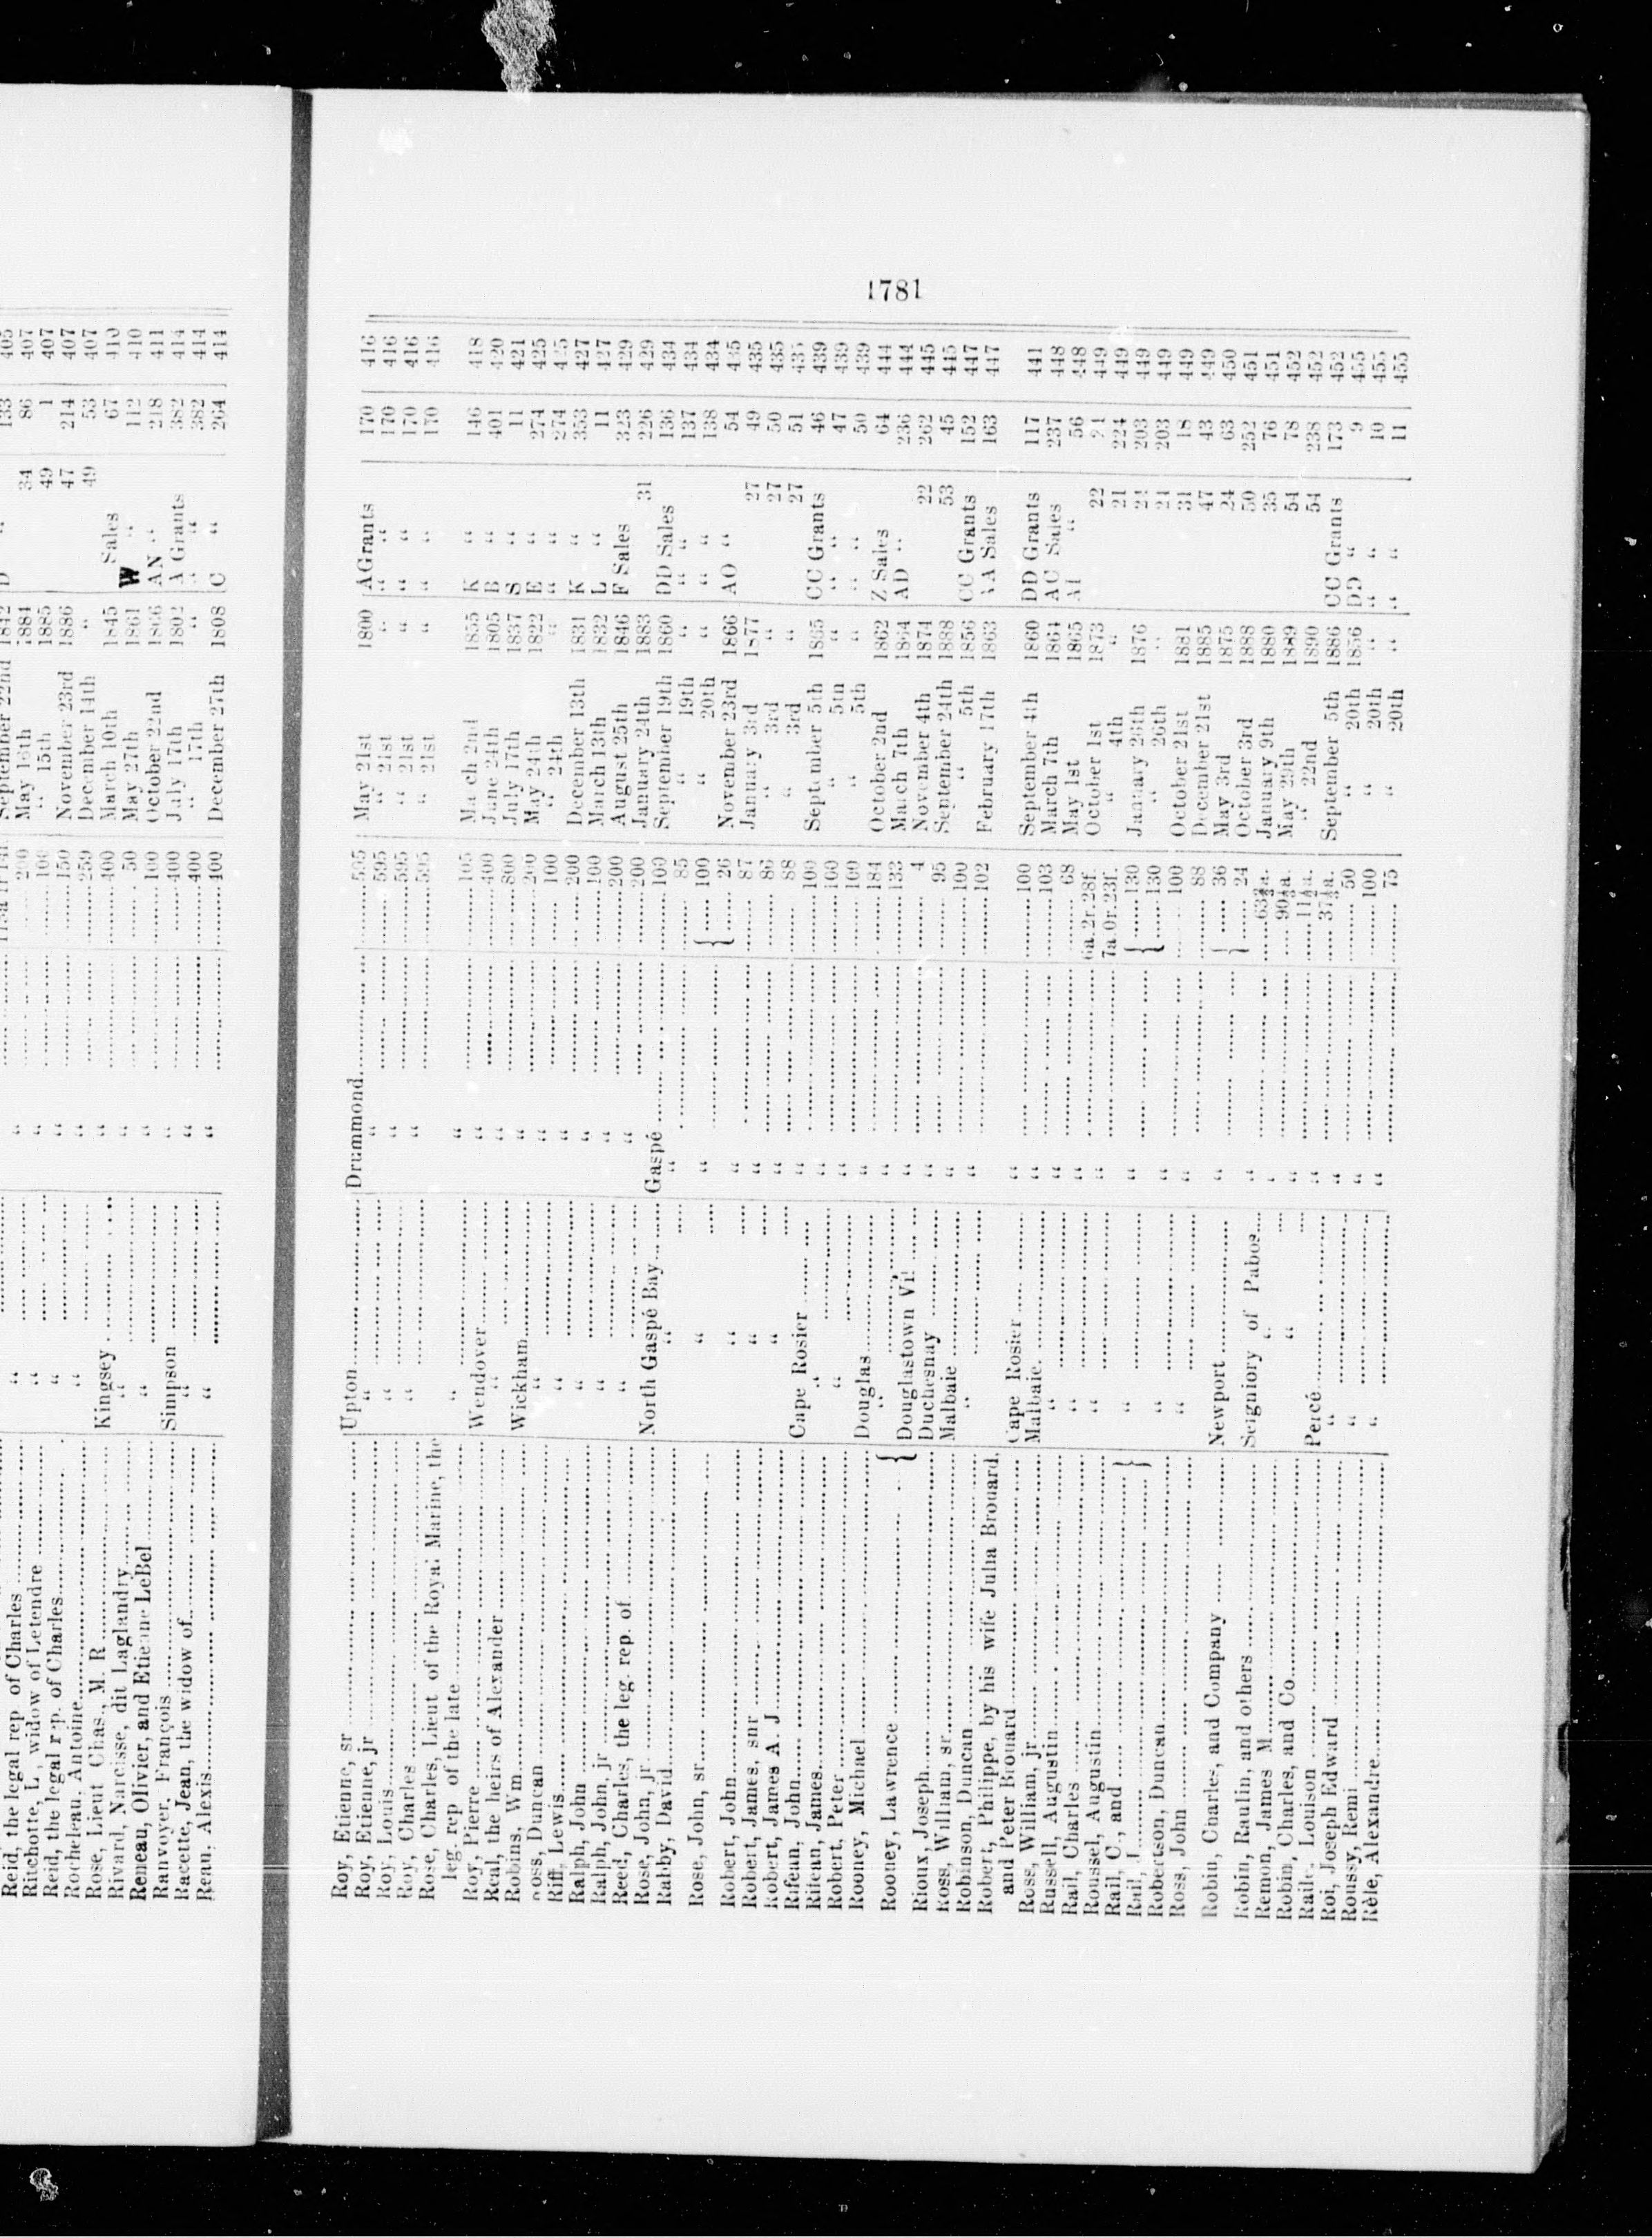 Reid, the legal rep of Charles " " 200 May 16th 1884 34 86 407
Ritchotte, L, widow of Letendre " " 100 " 15th 1885 49 1 407
Reid, the legal rep. of Charles " " 150 November 23rd 1886 47 214 407
Rocheleau, Antoine " " 259 December 14th " 49 53 407
Rose, Lieut Chas, M. R Kingsey " 400 March 10th 1845 Sales 67 410
Rivard, Narcisse, dit Laglandry " " 50 May 27th 1861 W " 112 410
Reneau, Olivier, and Etienne LeBel " " 100 October 22nd 1866 AN " 218 411
Ranvoyer, François Simpson " 400 July 17th 1802 A Grants 382 414
Racette, Jean, the widow of " " 400 " 17th " " " 382 414
Reau, Alexis " " 400 December 27th 1808 C " 264 414
1781
Roy, Etienne, sr Upton Drummond 595 May 21st 1800 A Grants 170 416
Roy, Etienne, jr " " 595 " 21st " " " 170 416
Roy, Louis " " 595 " 21st " " " 170 416
Roy, Charles " " 595 " 21st " " " 170 416
Rose, Charles, Lieut of the Royal Marine, the
leg. rep of the late " " 105 March 2nd 1855 K " 146 418
Roy, Pierre Wendover " 400 June 24th 1805 B " 401 420
Real, the heirs of Alexander " " 800 July 17th 1837 S " 11 421
Robins, Wm Wickham " 200 May 24th 1822 E " 274 425
Ross, Duncan " " 100 " 24th " " " 274 425
Riff, Lewis " " 200 December 13th 1831 K " 353 427
Ralph, John " " 100 March 13th 1832 L " 11 427
Ralph, John, jr " " 200 August 25th 1846 F Sales 323 429
Reed, Charles, the leg. rep. of " " 200 January 24th 1883 31 226 429
Rose, John, jr North Gaspé Bay Gaspé 100 September 19th 1860 DD Sales 136 434
Rahby, David " " 85 " 19th " " " 137 434
Rose, John, sr " " { 100 " 20th " " " 138 434
26 November 23rd 1866 AO " 54 435
Robert, John " " 87 January 3rd 1877 27 49 435
Robert, James, snr " " 86 " 3rd " 27 50 435
Robert, James A. J " " 88 " 3rd " 27 51 435
Rifean, John Cape Rosier " 100 September 5th 1865 CC Grants 46 439
Ritcan, James " " 100 " 5th " " " 47 439
Robert, Peter " " 100 " 5th " " " 50 439
Rooney, Michael Douglas " 184 October 2nd 1862 Z Sales 64 444
Rooney, Lawrence { " " 133 March 7th 1864 AD " 236 444
Douglastown Vil " 4 November 4th 1874 22 262 445
Rioux, Joseph Duchesnay " 95 September 24th 1888 53 45 445
Ross, William, sr Malbaie " 100 " 5th 1856 CC Grants 152 447
Robinson, Duncan " " 102 February 17th 1863 AA Sales 163 447
Robert, Philippe, by his wife Julia Brouard,
and Peter Brouard Cape Rosier " 100 September 4th 1860 DD Grants 117 441
Ross, William, jr Malbaie " 103 March 7th 1864 AC Sales 237 448
Russell, Augustin " " 68 May 1st 1865 AI " 56 448
Rail, Charles " " 6a.2r.28f. October 1st 1873 22 21 449
Roussel, Augustin " " 7a.0r.23f. " 4th " 21 224 449
Rail, C., and } " " { 130 January 26th 1876 24 203 449
Rail, J 130 " 26th " 24 203 449
Robertson, Duncan " " 100 October 21st 1881 31 18 449
Ross, John " " 88 December 21st 1885 47 43 449
Robin, Charles, and Company Newport " { 36 May 3rd 1875 24 63 450
24 October 3rd 1888 50 252 451
Robin, Raulin, and others Seigniory of Pabos " 63¾a. January 9th 1880 35 76 451
Remon, James M " " 90½a. May 29th 1889 54 78 452
Robin, Charles, and Co " " 11½a. " 22nd 1890 54 238 452
Raile, Louison Percé " 37¼a. September 5th 1886 CC Grants 173 452
Roi, Joseph Edward " " 50 " 20th 1856 DD " 9 455
Roussy, Remi " " 100 " 20th " " " 10 455
Rèle, Alexandre " " 75 " 20th " " " 11 455